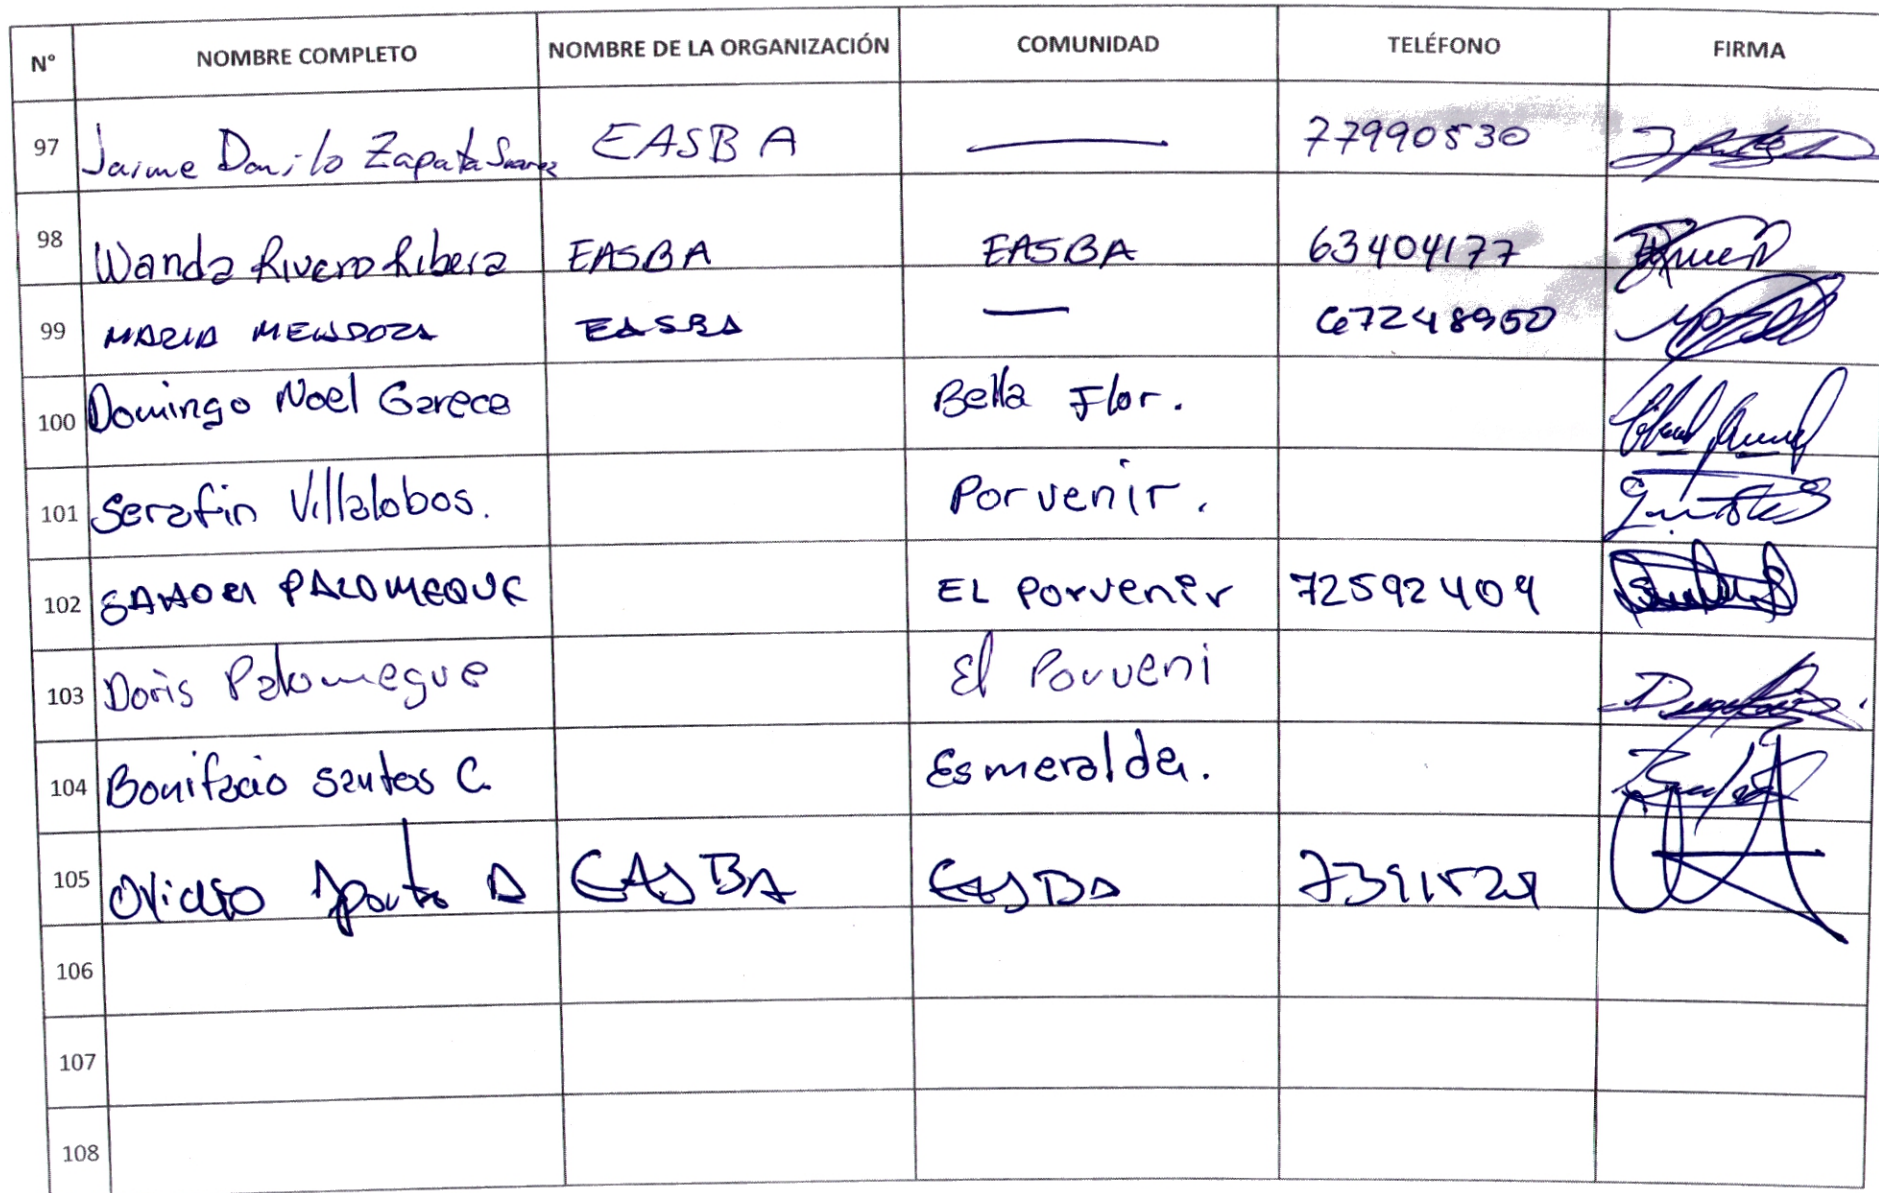 N° NOMBRE COMPLETO NOMBRE DE LA ORGANIZACIÓN COMUNIDAD TELÉFONO FIRMA
97 Jaime Danilo Zapata Suarez EASBA — 77990530
98 Wanda Rivero Ribera EASBA EASBA 63404177
99 MARIA MENDOZA EASBA — 67248950
100 Domingo Noel Gareca Bella Flor.
101 Serafin Villalobos. Porvenir.
102 PALOMEQUE EL Porvenir 72592409
103 Doris Palomeque El Porveni
104 Bonifacio Santos C. Esmeralda.
105 EASBA EASBA
106
107
108